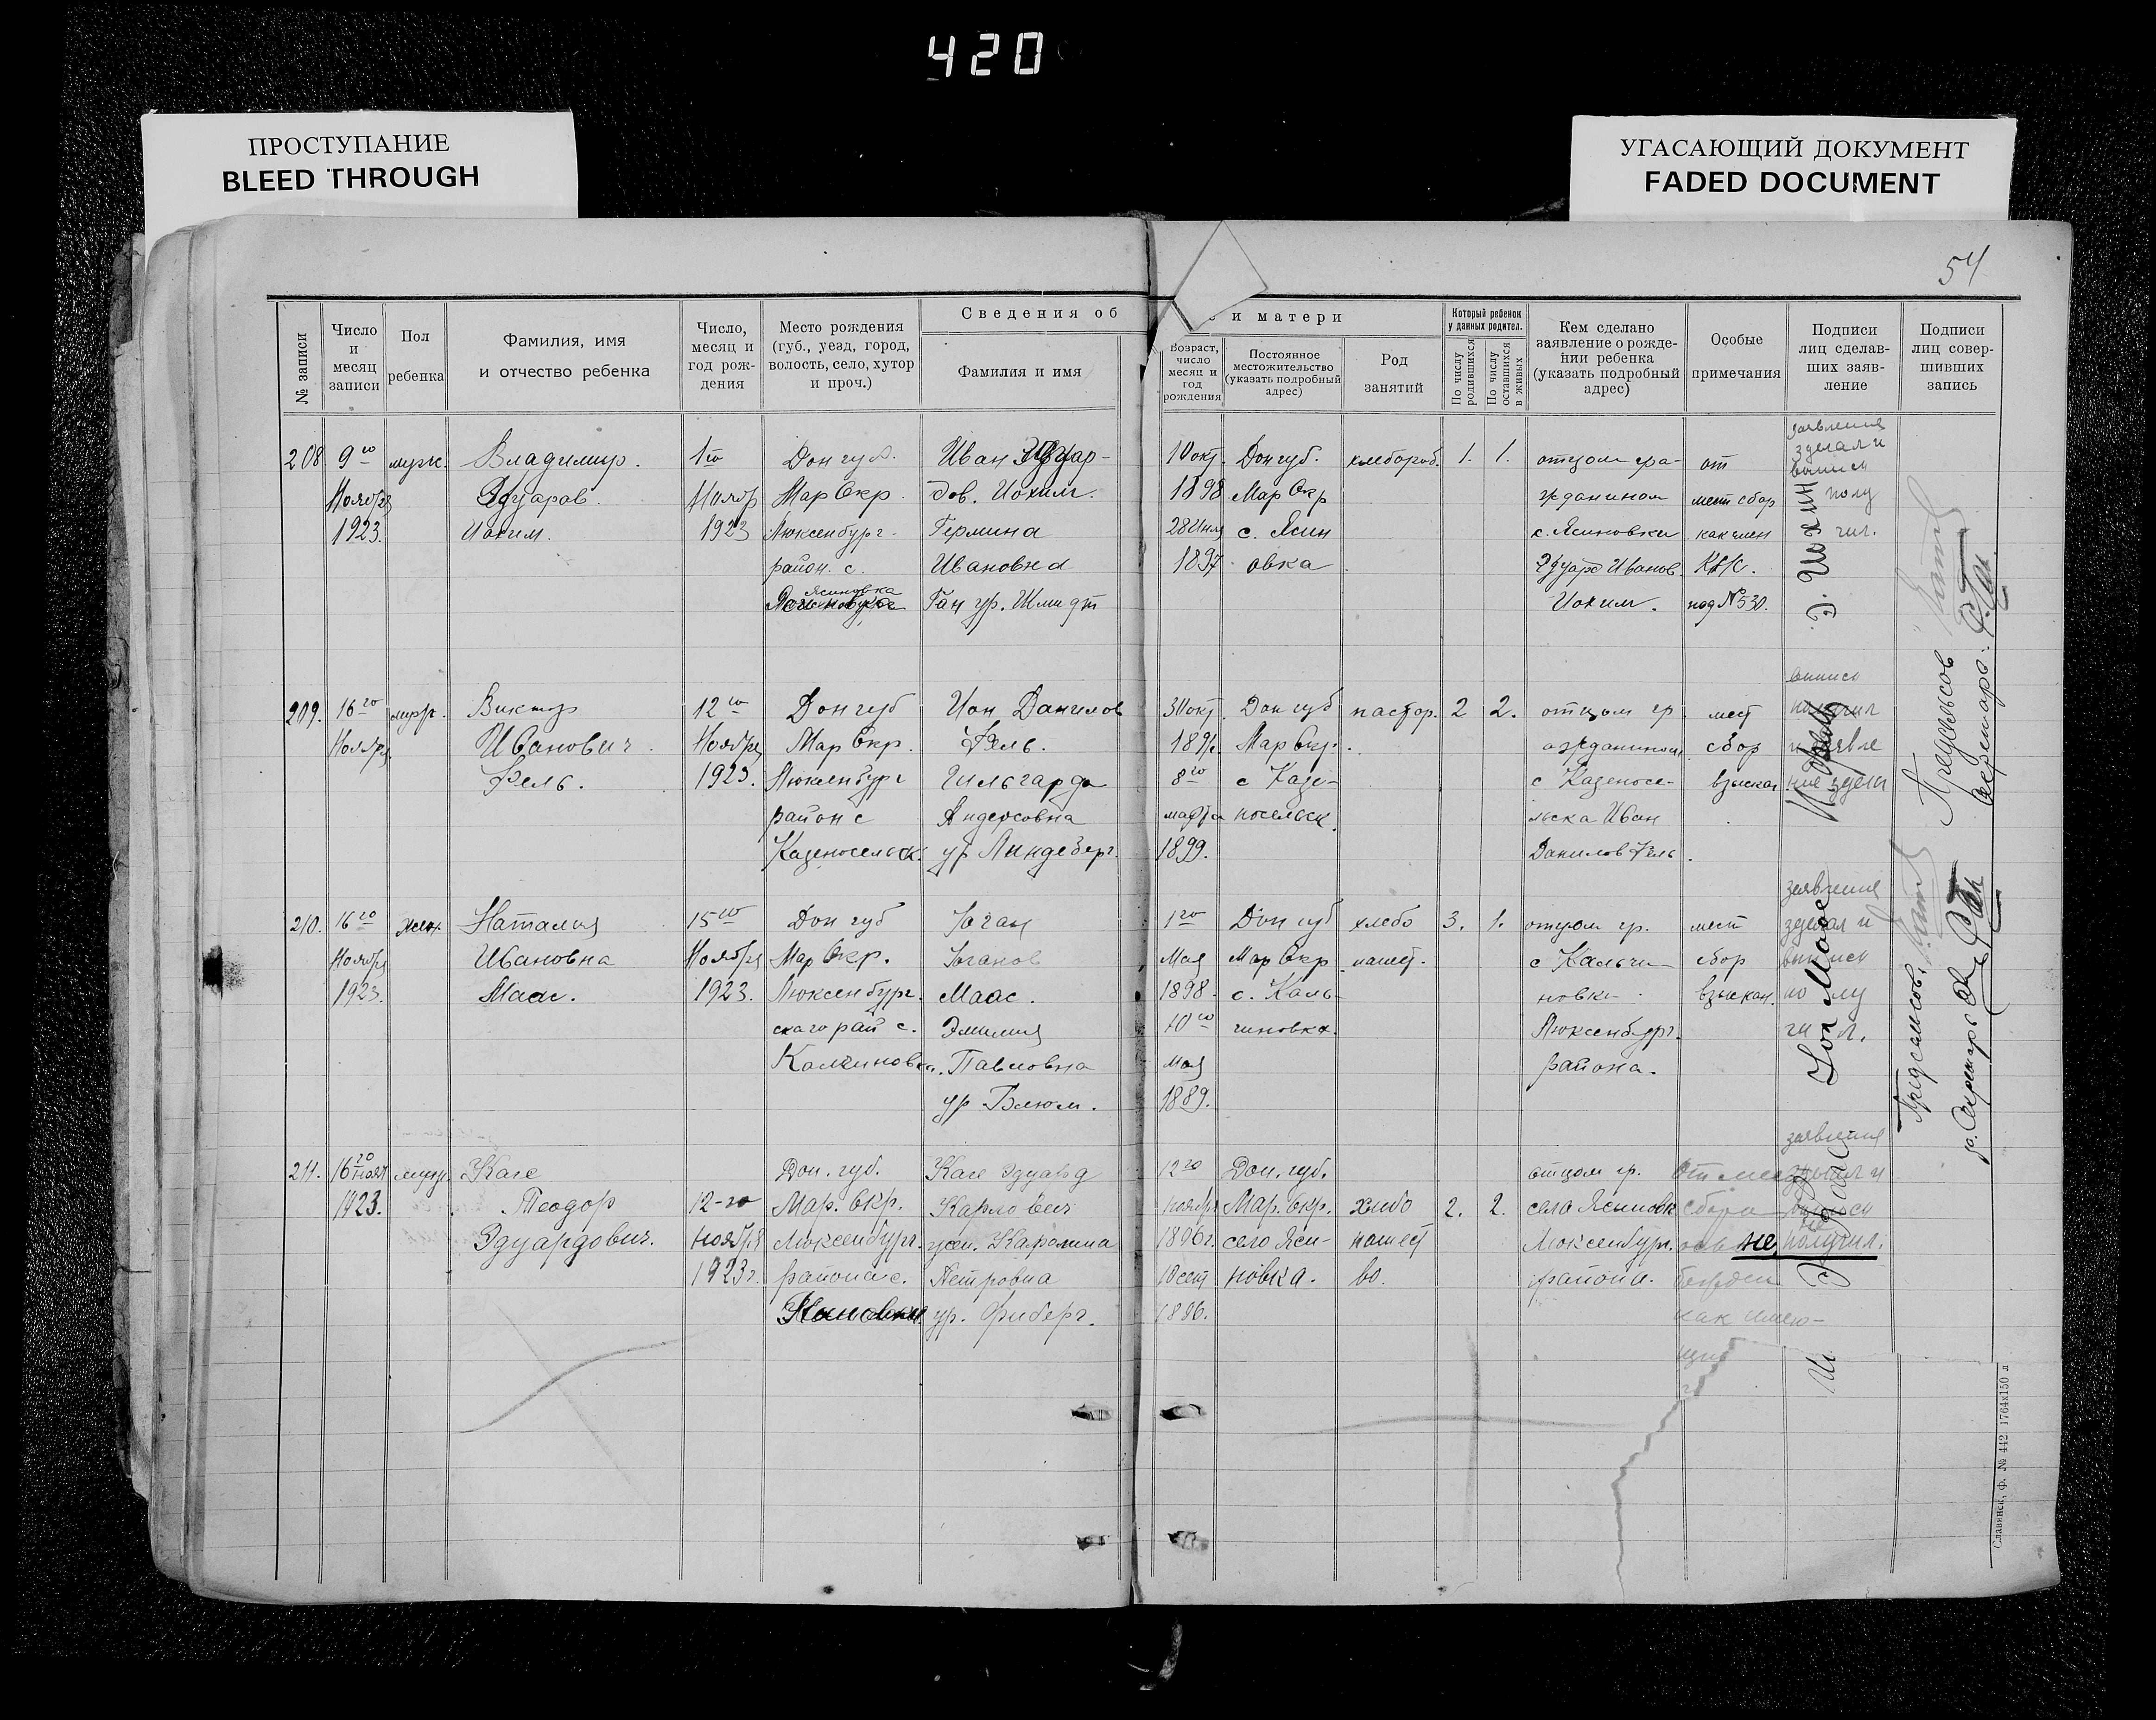 420
ПРОСТУПАНИЕ
BLEED THROUGH
УГАСАЮЩИЙ ДОКУМЕНТ
FADED DOCUMENT
54
№ записи
Число и месяц записи
Пол ребенка
Фамилия, имя и отчество ребенка
Число, месяц и год рождения
Место рождения (губ., уезд, город, волость, село, хутор и проч.)
Сведения об
и матери
Фамилия и имя
Возраст, число месяц и год рождения
Постоянное местожительство (указать подробный адрес)
Род занятий
Который ребенок у данных родител.
По числу родившихся
По числу оставшихся в живых
Кем сделано заявление о рождении ребенка (указать подробный адрес)
Особые примечания
Подписи лиц сделавших заявление
Подписи лиц совершивших запись
208 9го муж. Владимир. 1го Дон губ. Иван Эдуар- 10 окт. Дон губ. хлебороб. 1. 1. отцом гра- от
Ноября Эдуардов. Нояб Мар Окр. дов. Иохим. 1898 Мар Окр жданином мест сбор
1923. Иохим. 1923 Люксенбург. Гермина с. Ясин с. Ясиновки как член
район. с. Ивановна 1897 овка Эдуард Иванов.
Ясиновка Ган ур. Шмидт Иохим. под №530.
заявления
зделал и
выписи
полу
чил.
Э. Иохим
209. 16го муж. Виктор 12го Дон губ Ион Данилов 31 окт. Дон губ пастор. 2 2. отцом гр мест
Ноября Иванович. Ноября Мар Окр. Фель. Мар Окр. ажданином сбор
Фель. 1923. Люксенбург Гильгарда 8го с Казе- с Казеносе- взыскан
район с Андерсовна марта носельск. льска Иван
Казеносельск. ур Линдеберг. 1899. Данилов Фель
выписи
получил
210. 16го жен. Наталия 15го Дон губ Иоган 1го Дон губ хлебо 3. 1. отцом гр. мест
Ноября Ивановна Ноября Мар Окр. Иоганов Мая Мар Окр пашец. с Кальчи- сбор
1923. Маас. 1923. Люксенбург. Маас. 1898. с. Каль- новки. взыскан.
скаго рай с. Эмилия 10го чиновка. Люксенбург.
Калчиновки. Павловна мая района.
ур Блюм. 1889.
заявления
зделал и
выписи
по лу
чил.
Jon Maas
211. 16го нояб муж Каге Дон. губ. Каге Эдуард 12го Дон. губ. отцом гр.
1923. Теодор 12-го Мар. Окр. Карлович ноября Мар. Окр. хлебо 2. 2. села Ясиновк сбора
Эдуардович. ноября Люксенбург. жен. Каролина 1896г. село Яси- пашест Люксенбург. не получил.
1923г. района с. Петровна 10 сент новка. во. района.
ур. Фиберг. 1896. как имею-
щий
заявления
Председсов.
Секретарь:
Председсов.
Секретарь
Славянск, ф. № 442 1764х150 л